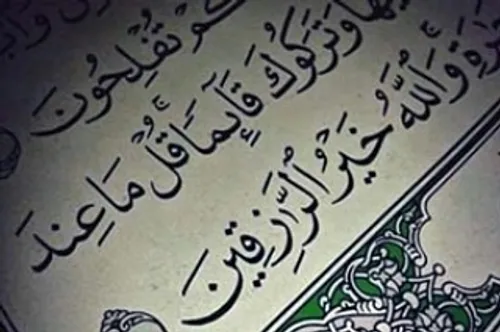 كُمْ تُفْلِحُونَ
وَتَرَكُوكَ قَائِمًا قُلْ مَا عِندَ
وَاللَّهُ خَيْرُ الرَّازِقِينَ